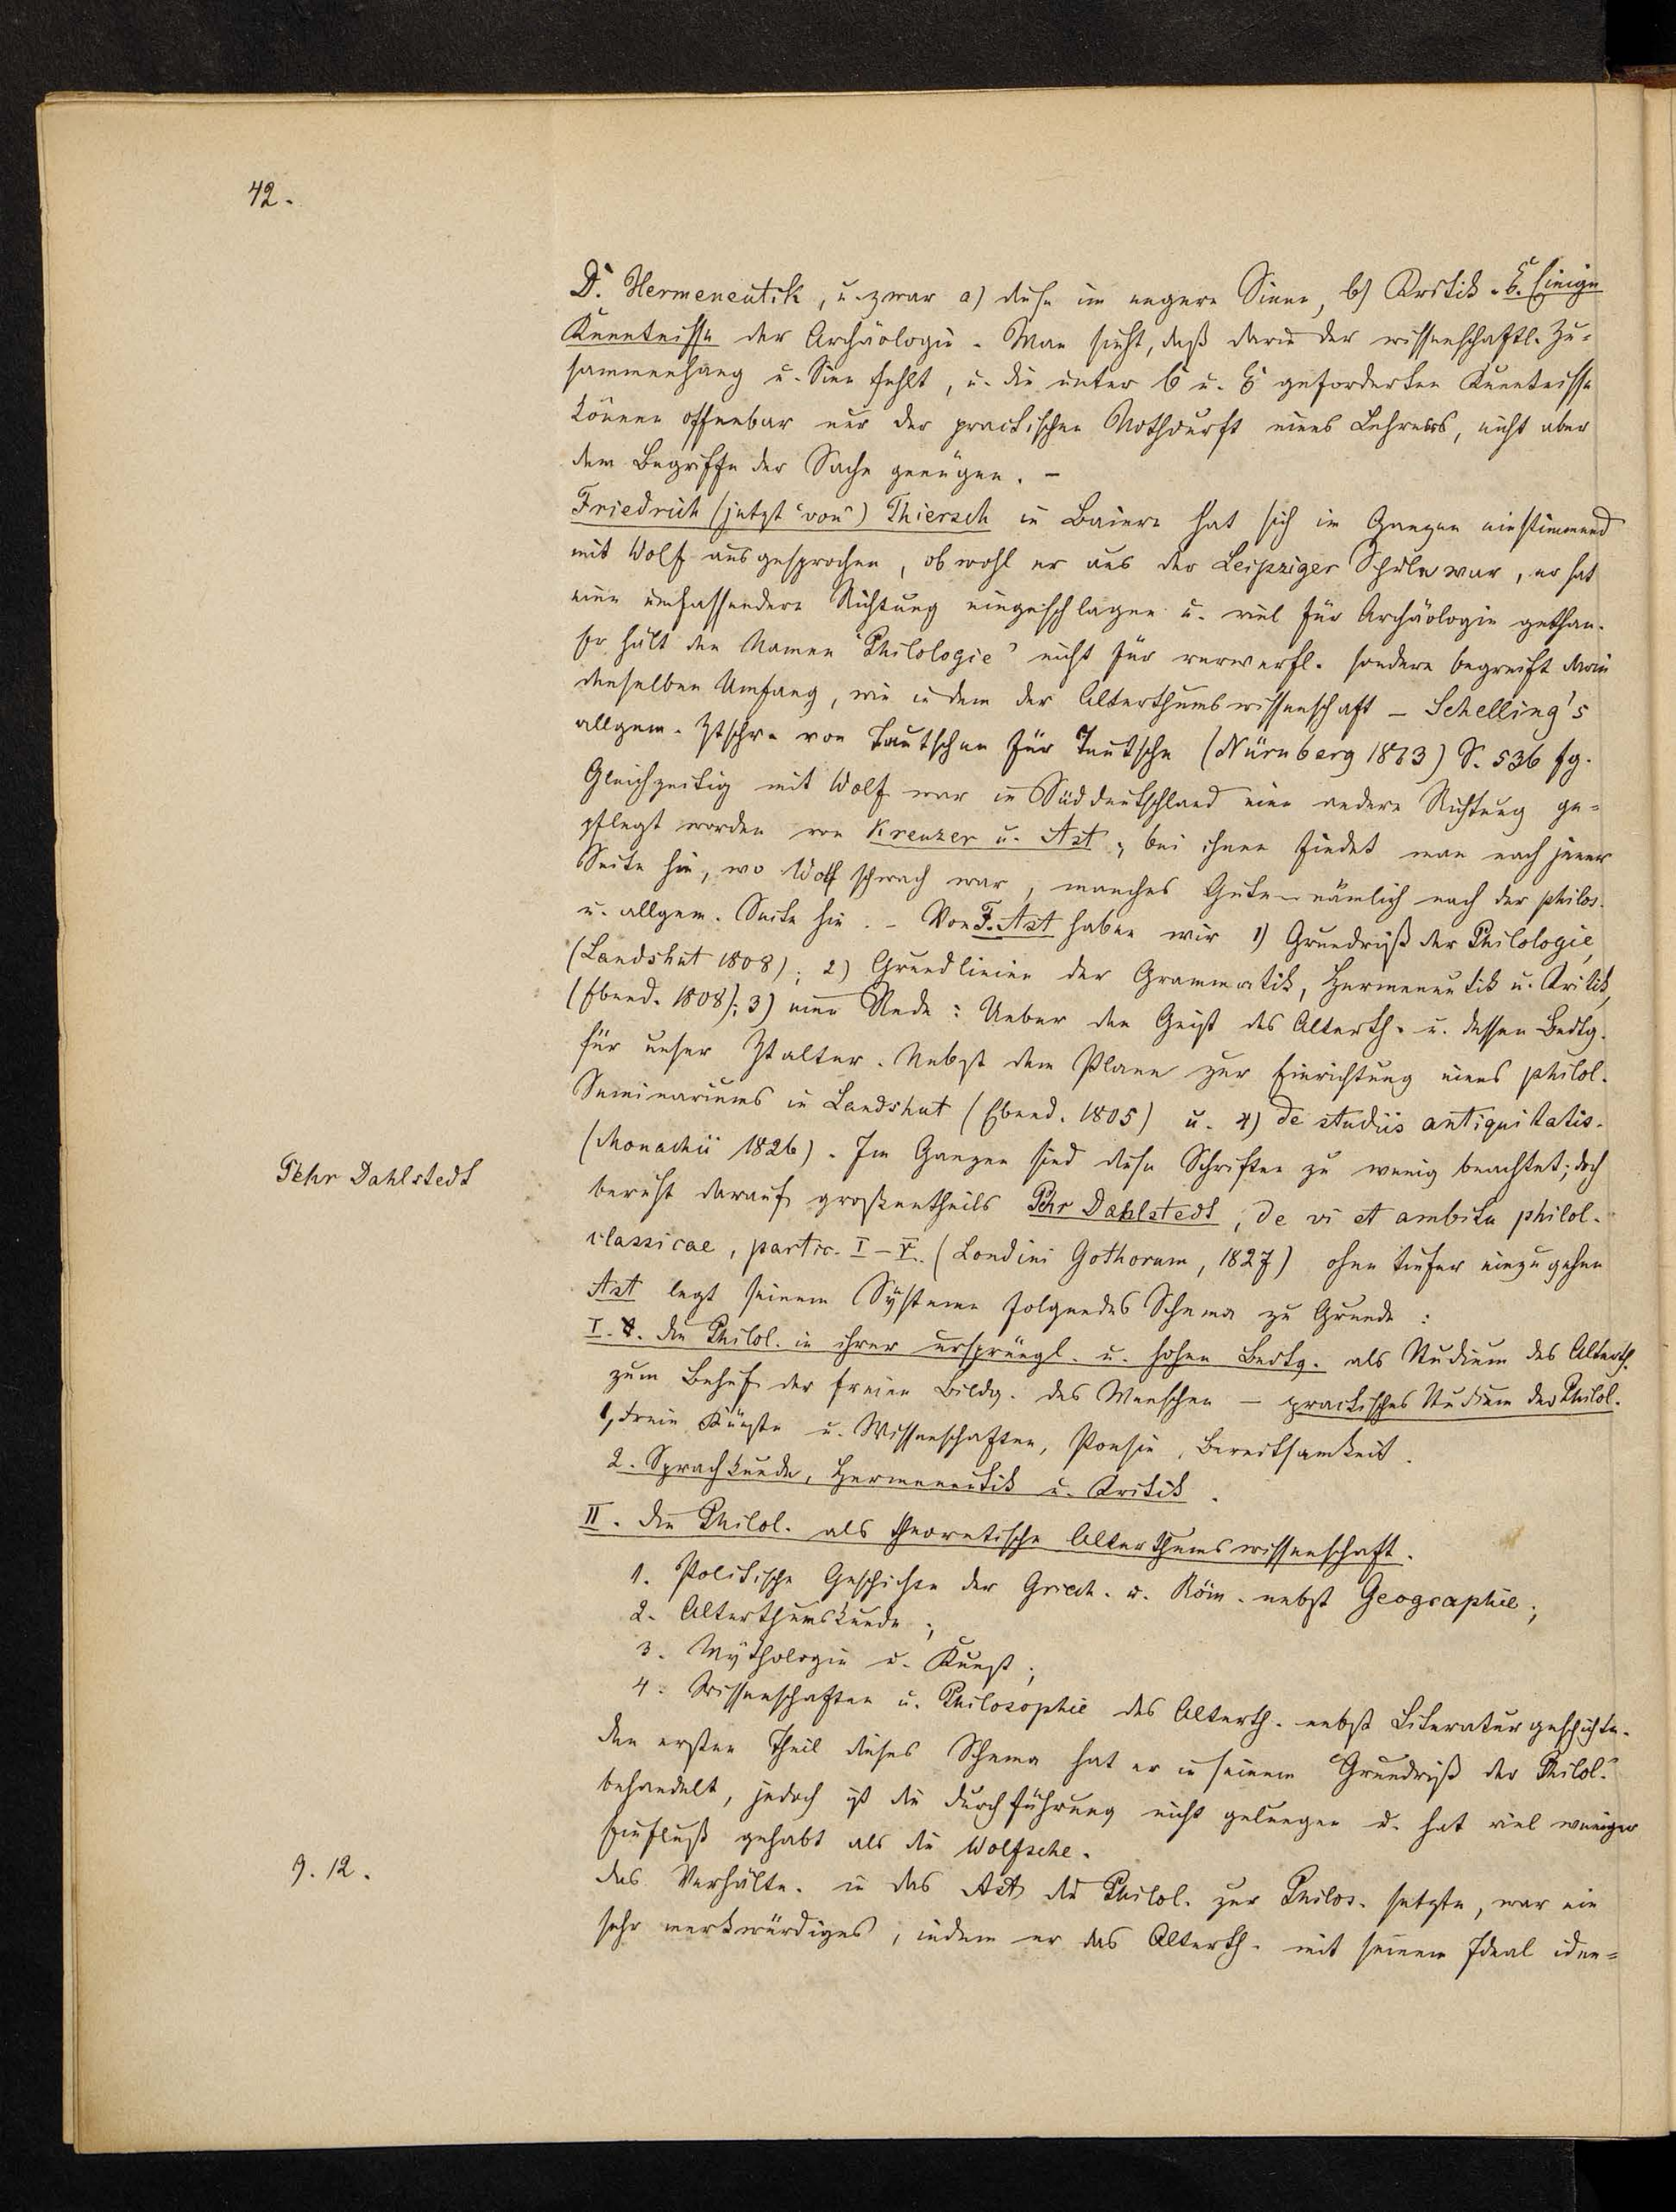 42.
D. Hermeneutik, u. zwar a) diese im engern Sinne, b) Kritik. E. Einige
Kenntnisse der Archäologie. Man sieht, daß darin der wissenschaftl. Zu-
sammenhang u. Sinn fehlt, u. die unter C u. E geforderten Kenntnisse
können offenbar nur der practischen Nothdurft eines Lehrers, nicht aber
dem Begriffe der Sache genügen. –
Friedrich (jetzt "von") Thiersch in Baiern hat sich im Ganzen einstimmend
mit Wolf ausgesprochen, obwohl er aus der Leipziger Schule war, er hat
eine umfassendere Richtung eingeschlagen u. viel für Archäologie gethan.
Er hält den Namen "Philologie" nicht für verwerfl. sondern begreift darin
denselben Umfang, wie in dem der Alterthumswissenschaft – Schelling's
allgem. Ztschr. von Teutschen für Teutsche (Nürnberg 1813) S. 536 fg.
Gleichzeitig mit Wolf war in Süddeutschland eine andere Richtung ge-
pflegt worden von Kreuzer u. Ast; bei ihnen findet man nach jener
Seite hin, wo Wolf schwach war, manches Gute – nämlich nach der philos.
u. allgem. Seite hin. – Von F. Ast haben wir 1) Grundriß der Philologie,
(Landshut 1808); 2) Grundlinien der Grammatik, Hermeneutik u. Kritik,
(Ebend. 1808); 3) eine Rede: Ueber den Geist des Alterth. u. dessen Bedtg.
für unser Ztalter. Nebst dem Plane zur Einrichtung eines philol.
Seminariums in Landshut (Ebend. 1805) u. 4) de studiis antiquitatis.
(Monachii 1826). Im Ganzen sind diese Schriften zu wenig beachtet; doch
Pehr Dahlstedt
beruht darauf großentheils Pehr Dahlstedt, de vi et ambitu philol.
classicae, partic. I – V. (Londini Gothorum, 1827) ohne tiefer einzugehen
Ast legt seinem Systeme folgendes Schema zu Grunde:
I. Die Philol. in ihrer ursprüngl. u. hohen Bedtg. als Studium des Alterth.
zum Behuf der freien Bildg. des Menschen – practisches Studium der Philol.
1, Freie Künste u. Wissenschaften, Poesie, Beredtsamkeit.
2. Sprachkunde, Hermeneutik u. Kritik.
II. Die Philol. als theoretische Alterthumswissenschaft.
1. Politische Geschichte der Griech. u. Röm. nebst Geographie;
2. Alterthumskunde;
3. Mythologie u. Kunst;
4. Wissenschaften u. Philosophie des Alterth. nebst Literaturgeschichte.
Den ersten Theil dieses Schema hat er in seinem "Grundriß der Philol."
behandelt, jedoch ist die Durchführung nicht gelungen u. hat viel weniger
Einfluß gehabt als die Wolfsche.
9. 12.
Das Verhältn. in das Ast die Philol. zur Philos. setzte, war ein
sehr merkwürdiges, indem er das Alterth. mit seinem Ideal iden-